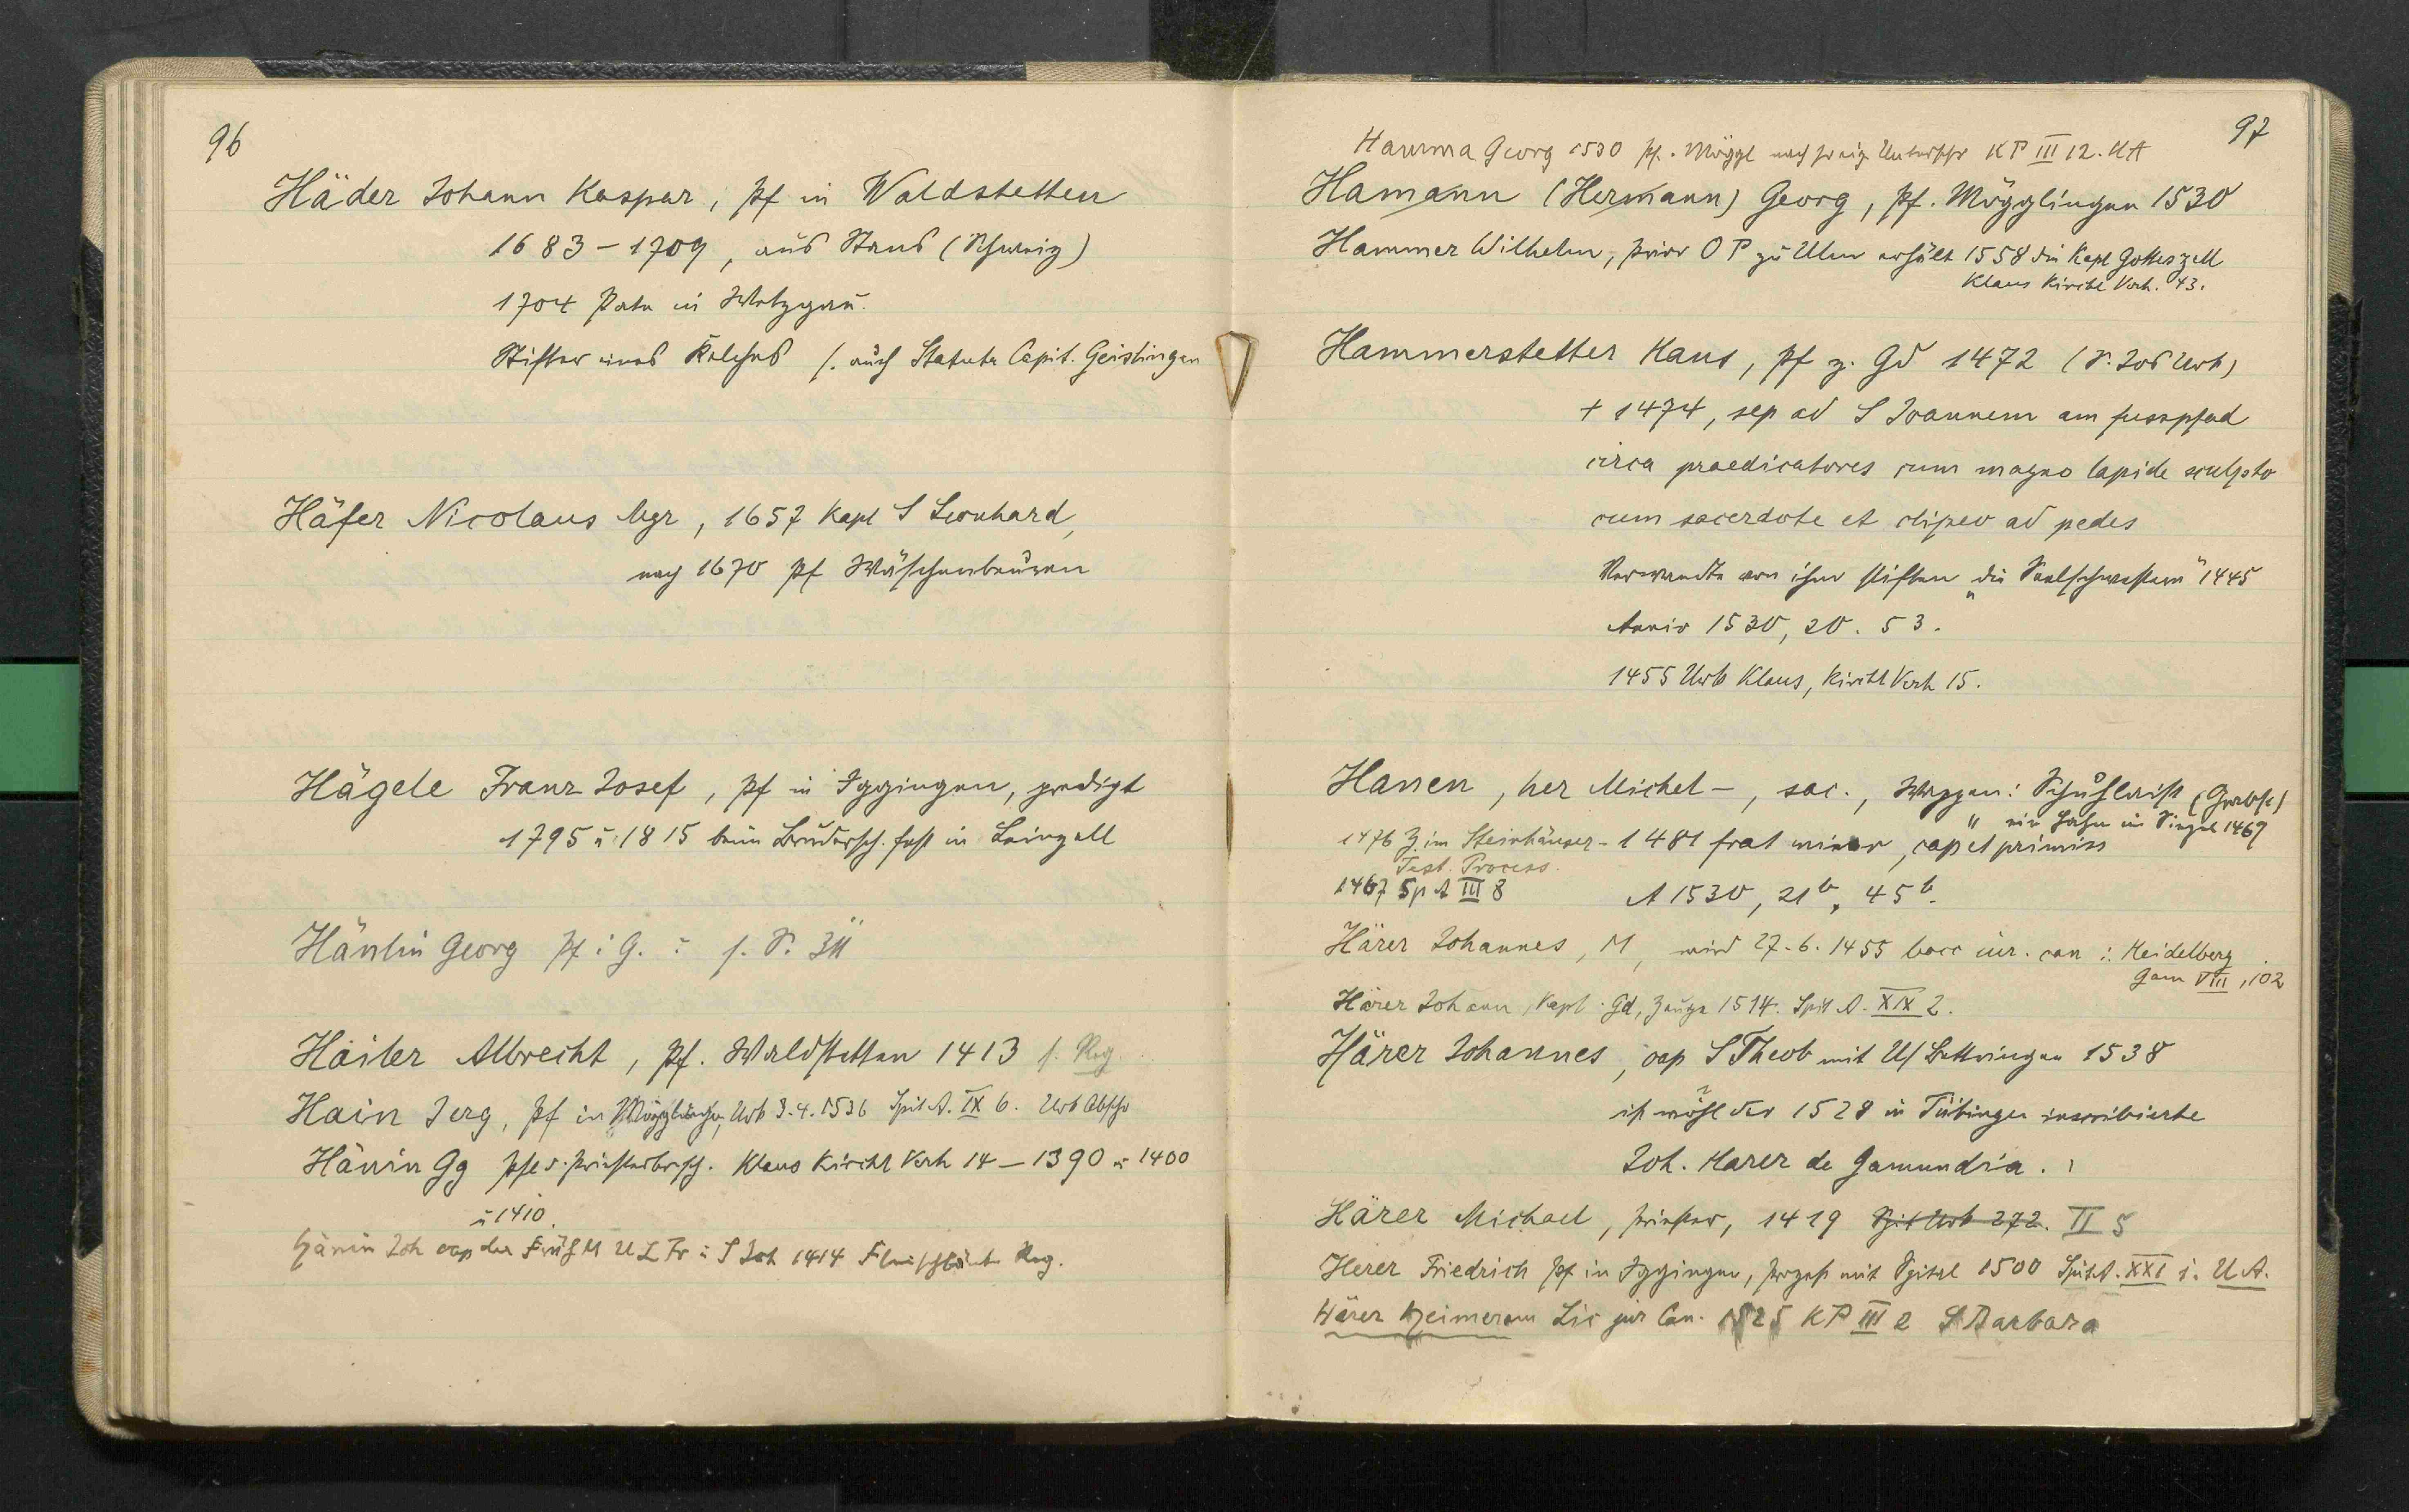 96
Häder Johann Kaspar, Pf in Waldstetten
1683-1709, aus Stans (Schweiz)
1704 Pate in Wetzgau.
Stifter eines Kelches s. auch Statuta Capit. Geislingen
Häfer Nicolaus Mgr, 1657 Kapl S Leonhard,
nach 1670 Pf Wäschenbeuren
Hägele Franz Josef, Pf in Iggingen, predigt
1795 u 1815 beim Brudersch. fest in Leinzell
Georg Pf i G. s. S.
Hailer Albrecht, Pf. Waldstetten 1413 s. Reg.
Hain Jerg, Pf in Mögglingen, Urk 3.4.1536 Spit A. IX 6. Urk Abschr
Hänin Gg Pfl d. Priesterbrsch. Klaus Kirchl Verh 14-1390 u 1400
u 1410.
Hänin Joh cap der Früh M U L Fr i S Joh 1414 Fleischbänke Reg.
97
Hamma Georg 1530 Pf. Möggl nach Unterschr KP III 12. KA
Hamann (Hermann) Georg, Pf. Mögglingen 1530
Hammer Wilhelm, Prior O P zu Ulm erhält 1558 die Kapl Gotteszell
Klaus Kirchl Verh. 43.
Hammerstetter Hans, Pf z. Gd 1472 (S. Jos Urk)
+ 1474, sep ad S Joannem am fusspfad
circa praedicatores cum magno lapide sculpto
cum sacerdote et clipeo ad pedes
Verwandte von ihm stiften "die Seelschwestern" 1445
Anniv 1530, 20. 53.
1455 Urk Klaus, Kirchl Verh 15.
Hanen, her Michel -, sac., Wappen: Schuhleist (Grabst)
" ein Hahn im Siegel 1469
1476 Z. im Steinhäuser- 1481 frat minor, cap et primiss
Test. Process.
1467 Sp A III 8 A 1530, 21b, 45b.
Härer Johannes, M, wird 27.6.1455 bacc iur. can i. Heidelberg
Gam VIII, 102
Härer Johann, Kapl. Gd, Zeuge 1514. Spit A. XIX 2.
Härer Johannes, cap S Theob mit U/Bettringen 1538
ist wohl der 1528 in Tübingen inscribierte
Joh. Harer de Gamundia.
Härer Michael, Priester, 1419 Spit Urk 272. II 5
Herer Friedrich Pf in Iggingen, Prozess mit Spital 1500 Spit A. XXI 1. U A.
Härer Heimeram Lic jur Can. 1525 KP III 2 S Barbara